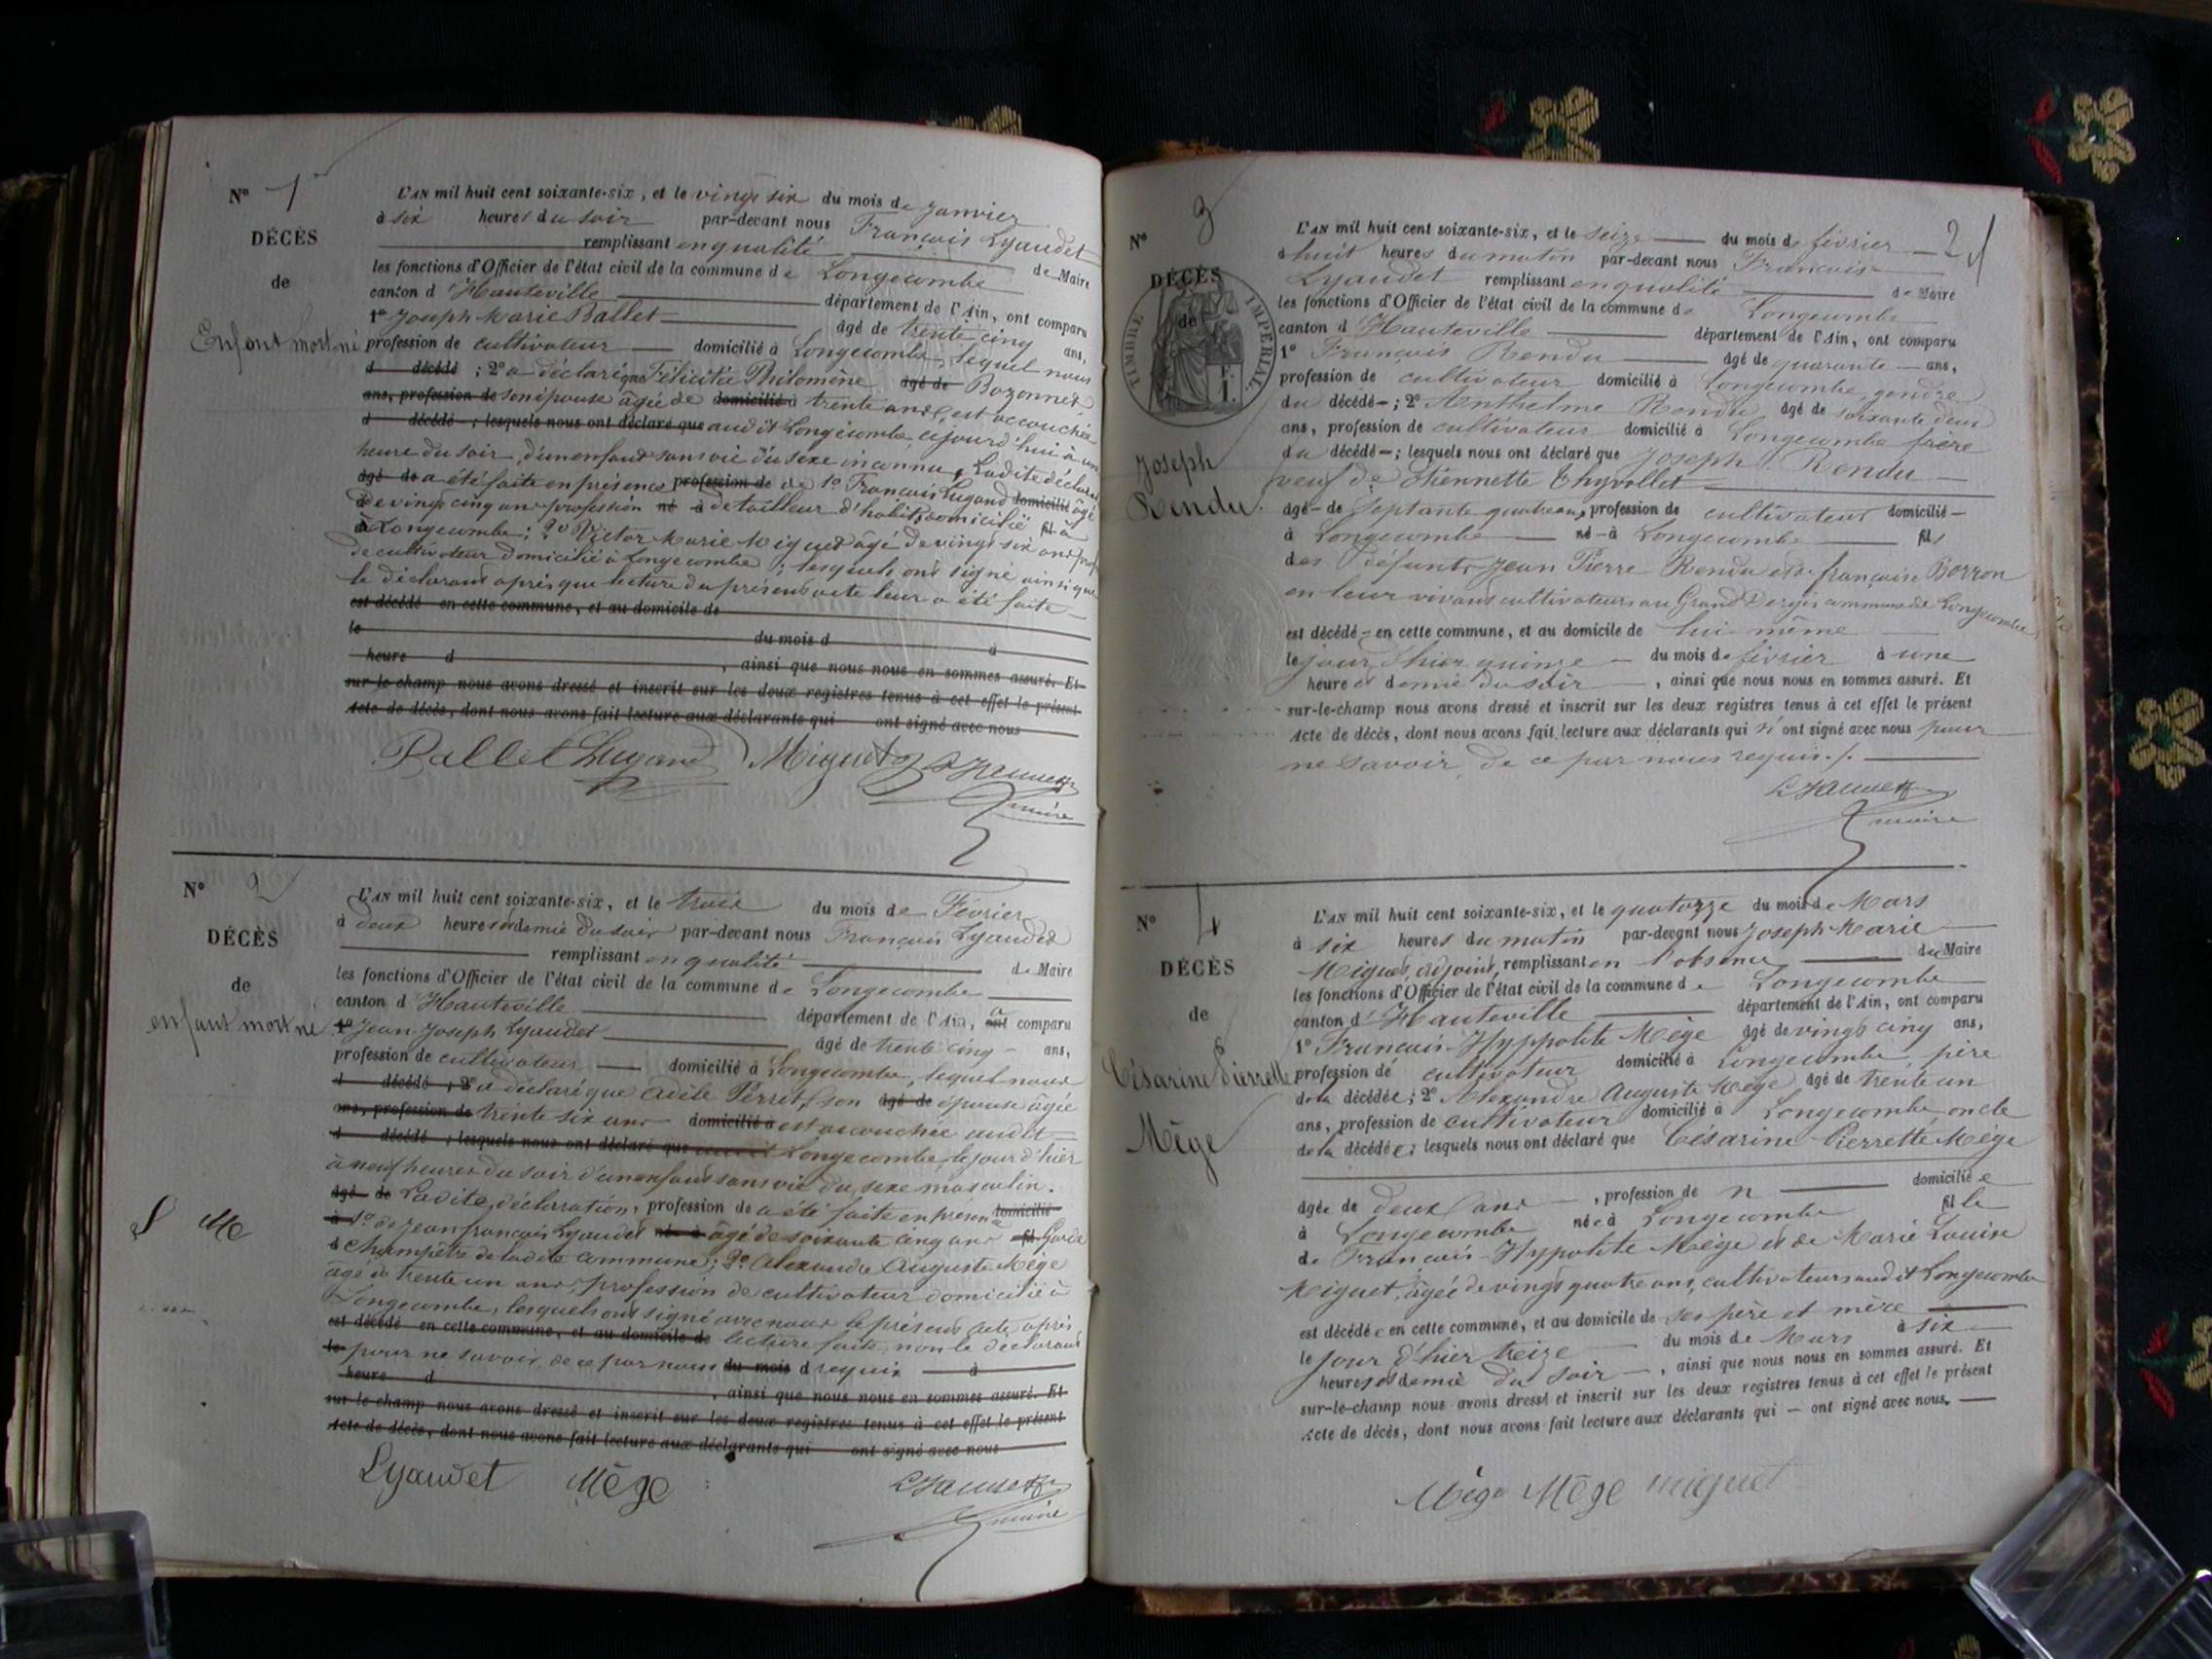 N° 1
DÉCÈS
de
Enfant mort né
L'AN mil huit cent soixante-six, et le vingt six du mois de Janvier
à six heures du soir par-devant nous François Lyaudet
remplissant en qualité de Maire
les fonctions d'Officier de l'état civil de la commune de Longecombe
canton d'Hauteville département de l'Ain, ont comparu
1° Joseph Marie Ballet âgé de trente cinq ans,
profession de cultivateur domicilié à Longecombe, lequel nous
d décédé ; 2° a déclaré que Félicitée Philomène âgé de Bozonnet
ans, profession de son épouse âgée de domicilié à trente ans, est accouchée
d décédé ; lesquels nous ont déclaré que audit Longecombe, cejourd'hui à une
heure du soir, d'un enfant sans vie du sexe inconnu. Ladite déclaration
âgé de a été faite en présence profession de de 1° François Lugand domicilié âgé
de vingt cinq ans profession né à de tailleur d'habits domicilié fil
à Longecombe ; 2° Victor Marie Miguet âgé de vingt six ans prof
de cultivateur domicilié à Longecombe ; lesquels ont signé ainsi que
le déclarant après que lecture du présent acte leur a été faite
est décédé en cette commune, et au domicile de
le du mois d à
heure d , ainsi que nous nous en sommes assuré. Et
sur-le-champ nous avons dressé et inscrit sur les deux registres tenus à cet effet le présent
Acte de décès, dont nous avons fait lecture aux déclarants qui ont signé avec nous
Ballet Lugand Miguet Lyaudet
maire
N° 2
DÉCÈS
de
enfant mort né
L'AN mil huit cent soixante-six, et le trois du mois de Février
à deux heures et demie du soir par-devant nous François Lyaudet
remplissant en qualité de Maire
les fonctions d'Officier de l'état civil de la commune de Longecombe
canton d'Hauteville département de l'Ain, ont a comparu
1° Jean Joseph Lyaudet âgé de trente cinq ans,
profession de cultivateur domicilié à Longecombe, lequel nous
d décédé ; 2° a déclaré que Adèle Perret, son âgé de épouse âgée
ans, profession de trente six ans domicilié à est accouchée audit
d décédé ; lesquels nous ont déclaré que Longecombe, le jour d'hier
à neuf heures du soir d'un enfant sans vie du sexe masculin.
âgé de Ladite déclaration, profession de a été faite en présence domicilié
à 1° de Jean François Lyaudet né à âgé de soixante cinq ans fil Garde
d Champêtre de ladite commune ; 2° Alexandre Auguste Mège
âgé de trente un ans, profession de cultivateur domicilié à
Longecombe, lesquels ont signé avec nous le présent acte après
est décédé en cette commune, et au domicile de lecture faite, non le déclarant
le pour ne savoir, de ce par nous du mois d requis à
heure d , ainsi que nous nous en sommes assuré. Et
sur-le-champ nous avons dressé et inscrit sur les deux registres tenus à cet effet le présent
Acte de décès, dont nous avons fait lecture aux déclarants qui ont signé avec nous
Lyaudet Mège Lyaudet
maire
N° 3
2
DÉCÈS
de
TIMBRE IMPÉRIAL
Joseph
Rendu.
L'AN mil huit cent soixante-six, et le seize du mois de février
à huit heures du matin par-devant nous François
Lyaudet remplissant en qualité de Maire
les fonctions d'Officier de l'état civil de la commune de Longecombe
canton d'Hauteville département de l'Ain, ont comparu
1° François Rendu âgé de quarante ans,
profession de cultivateur domicilié à Longecombe, gendre
du décédé ; 2° Anthelme Rendu, âgé de soixante deux
ans, profession de cultivateur domicilié à Longecombe frère
du décédé ; lesquels nous ont déclaré que Joseph Rendu
veuf de Etiennette Thyvollet
âgé de septante quatre ans, profession de cultivateur domicilié
à Longecombe né à Longecombe fils
des défunts Jean Pierre Rendu et de françoise Borron
en leur vivant cultivateurs au Grand Dergis commune de Longecombe
est décédé en cette commune, et au domicile de lui même
le jour d'hier quinze du mois de février à une
heure et demie du soir , ainsi que nous nous en sommes assuré. Et
sur-le-champ nous avons dressé et inscrit sur les deux registres tenus à cet effet le présent
Acte de décès, dont nous avons fait lecture aux déclarants qui n'ont signé avec nous pour
ne savoir, de ce par nous requis.
Lyaudet
maire
N° 4
DÉCÈS
de
Césarine Pierrette
Mège
L'AN mil huit cent soixante-six, et le quatorze du mois de Mars
à six heures du matin par-devant nous Joseph Marie
Miguet, adjoint, remplissant en l'absence du Maire
les fonctions d'Officier de l'état civil de la commune de Longecombe
canton d'Hauteville département de l'Ain, ont comparu
1° Francois-Hyppolite Mège âgé de vingt cinq ans,
profession de cultivateur domicilié à Longecombe, père
de la décédée ; 2° Alexandre Auguste Mège, âgé de trente un
ans, profession de cultivateur domicilié à Longecombe oncle
de la décédée ; lesquels nous ont déclaré que Césarine Pierrette Mège
âgée de deux ans , profession de n domiciliée
à Longecombe née à Longecombe fille
de Francois-Hyppolite Mège et de Marie Louise
Miguet, âgée de vingt quatre ans, cultivateurs audit Longecombe
est décédée en cette commune, et au domicile de ses père et mère
le jour d'hier treize du mois de Mars à six
heures et demie du soir , ainsi que nous nous en sommes assuré. Et
sur-le-champ nous avons dressé et inscrit sur les deux registres tenus à cet effet le présent
Acte de décès, dont nous avons fait lecture aux déclarants qui ont signé avec nous.
Mège Mège Miguet